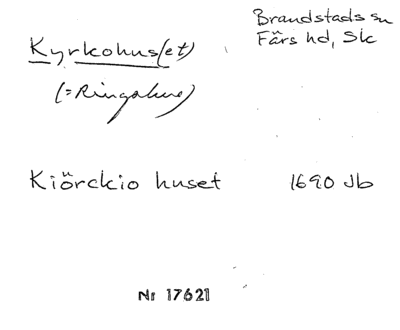 Brandstads sn
Färs hd, Sk
Kyrkohus(et)
(=Ringahus)
Kiörckio huset 1690 Jb
Nr 17621